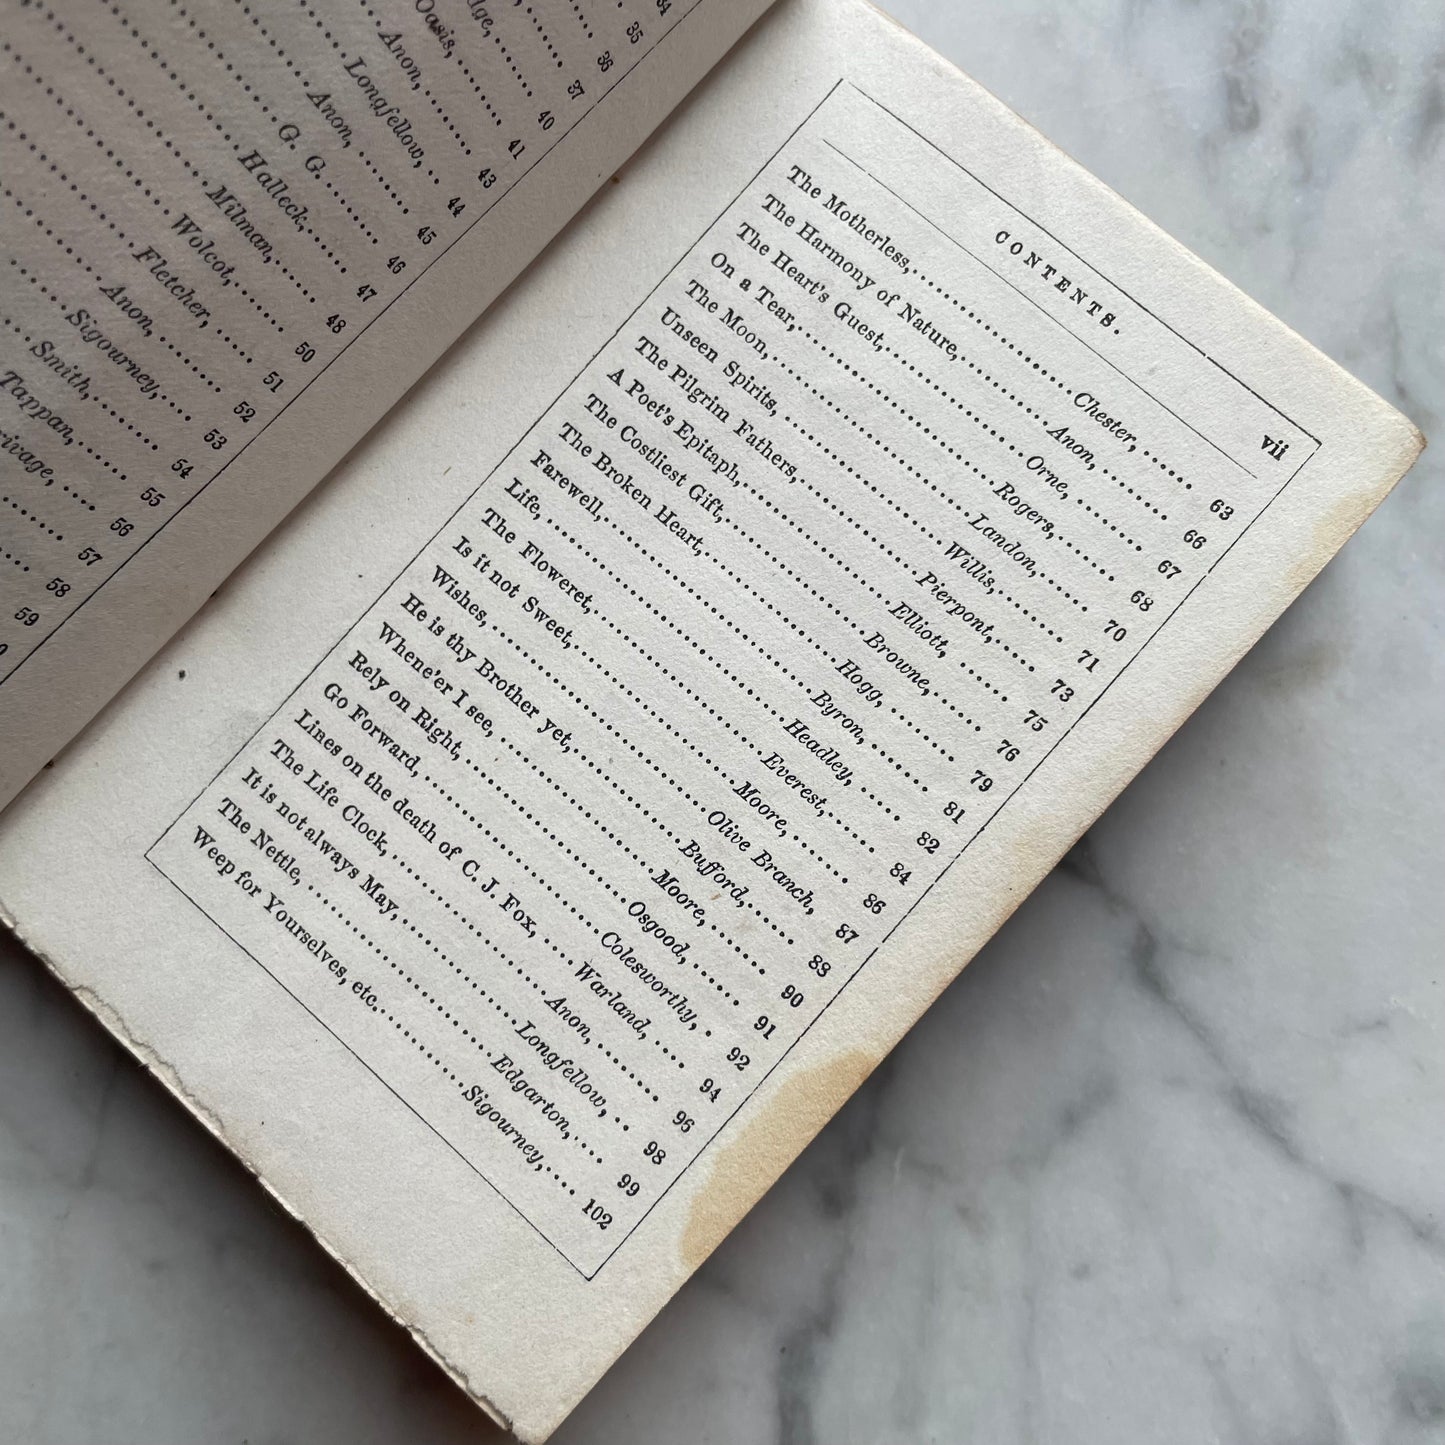 34
35
36
37
40
Oasis, 41
Anon, 43
Longfellow, 44
Anon, 45
G. G. 46
Halleck, 47
Milman, 48
Wolcot, 50
Fletcher, 51
Anon, 52
Sigourney, 53
Smith, 54
Tappan, 55
56
57
58
59
CONTENTS. vii
The Motherless, Chester, 63
The Harmony of Nature, Anon, 66
The Heart's Guest, Orne, 67
On a Tear, Rogers, 68
The Moon, Landon, 70
Unseen Spirits, Willis, 71
The Pilgrim Fathers, Pierpont, 73
A Poet's Epitaph, Elliott, 75
The Costliest Gift, Browne, 76
The Broken Heart, Hogg, 79
Farewell, Byron, 81
Life, Headley, 82
The Floweret, Everest, 84
Is it not Sweet, Moore, 86
Wishes, Olive Branch, 87
He is thy Brother yet, Bufford, 88
Whene'er I see, Moore, 90
Rely on Right, Osgood, 91
Go Forward, Colesworthy, 92
Lines on the death of C. J. Fox, Warland, 94
The Life Clock, Anon, 96
It is not always May, Longfellow, 98
The Nettle, Edgarton, 99
Weep for Yourselves, etc. Sigourney, 102